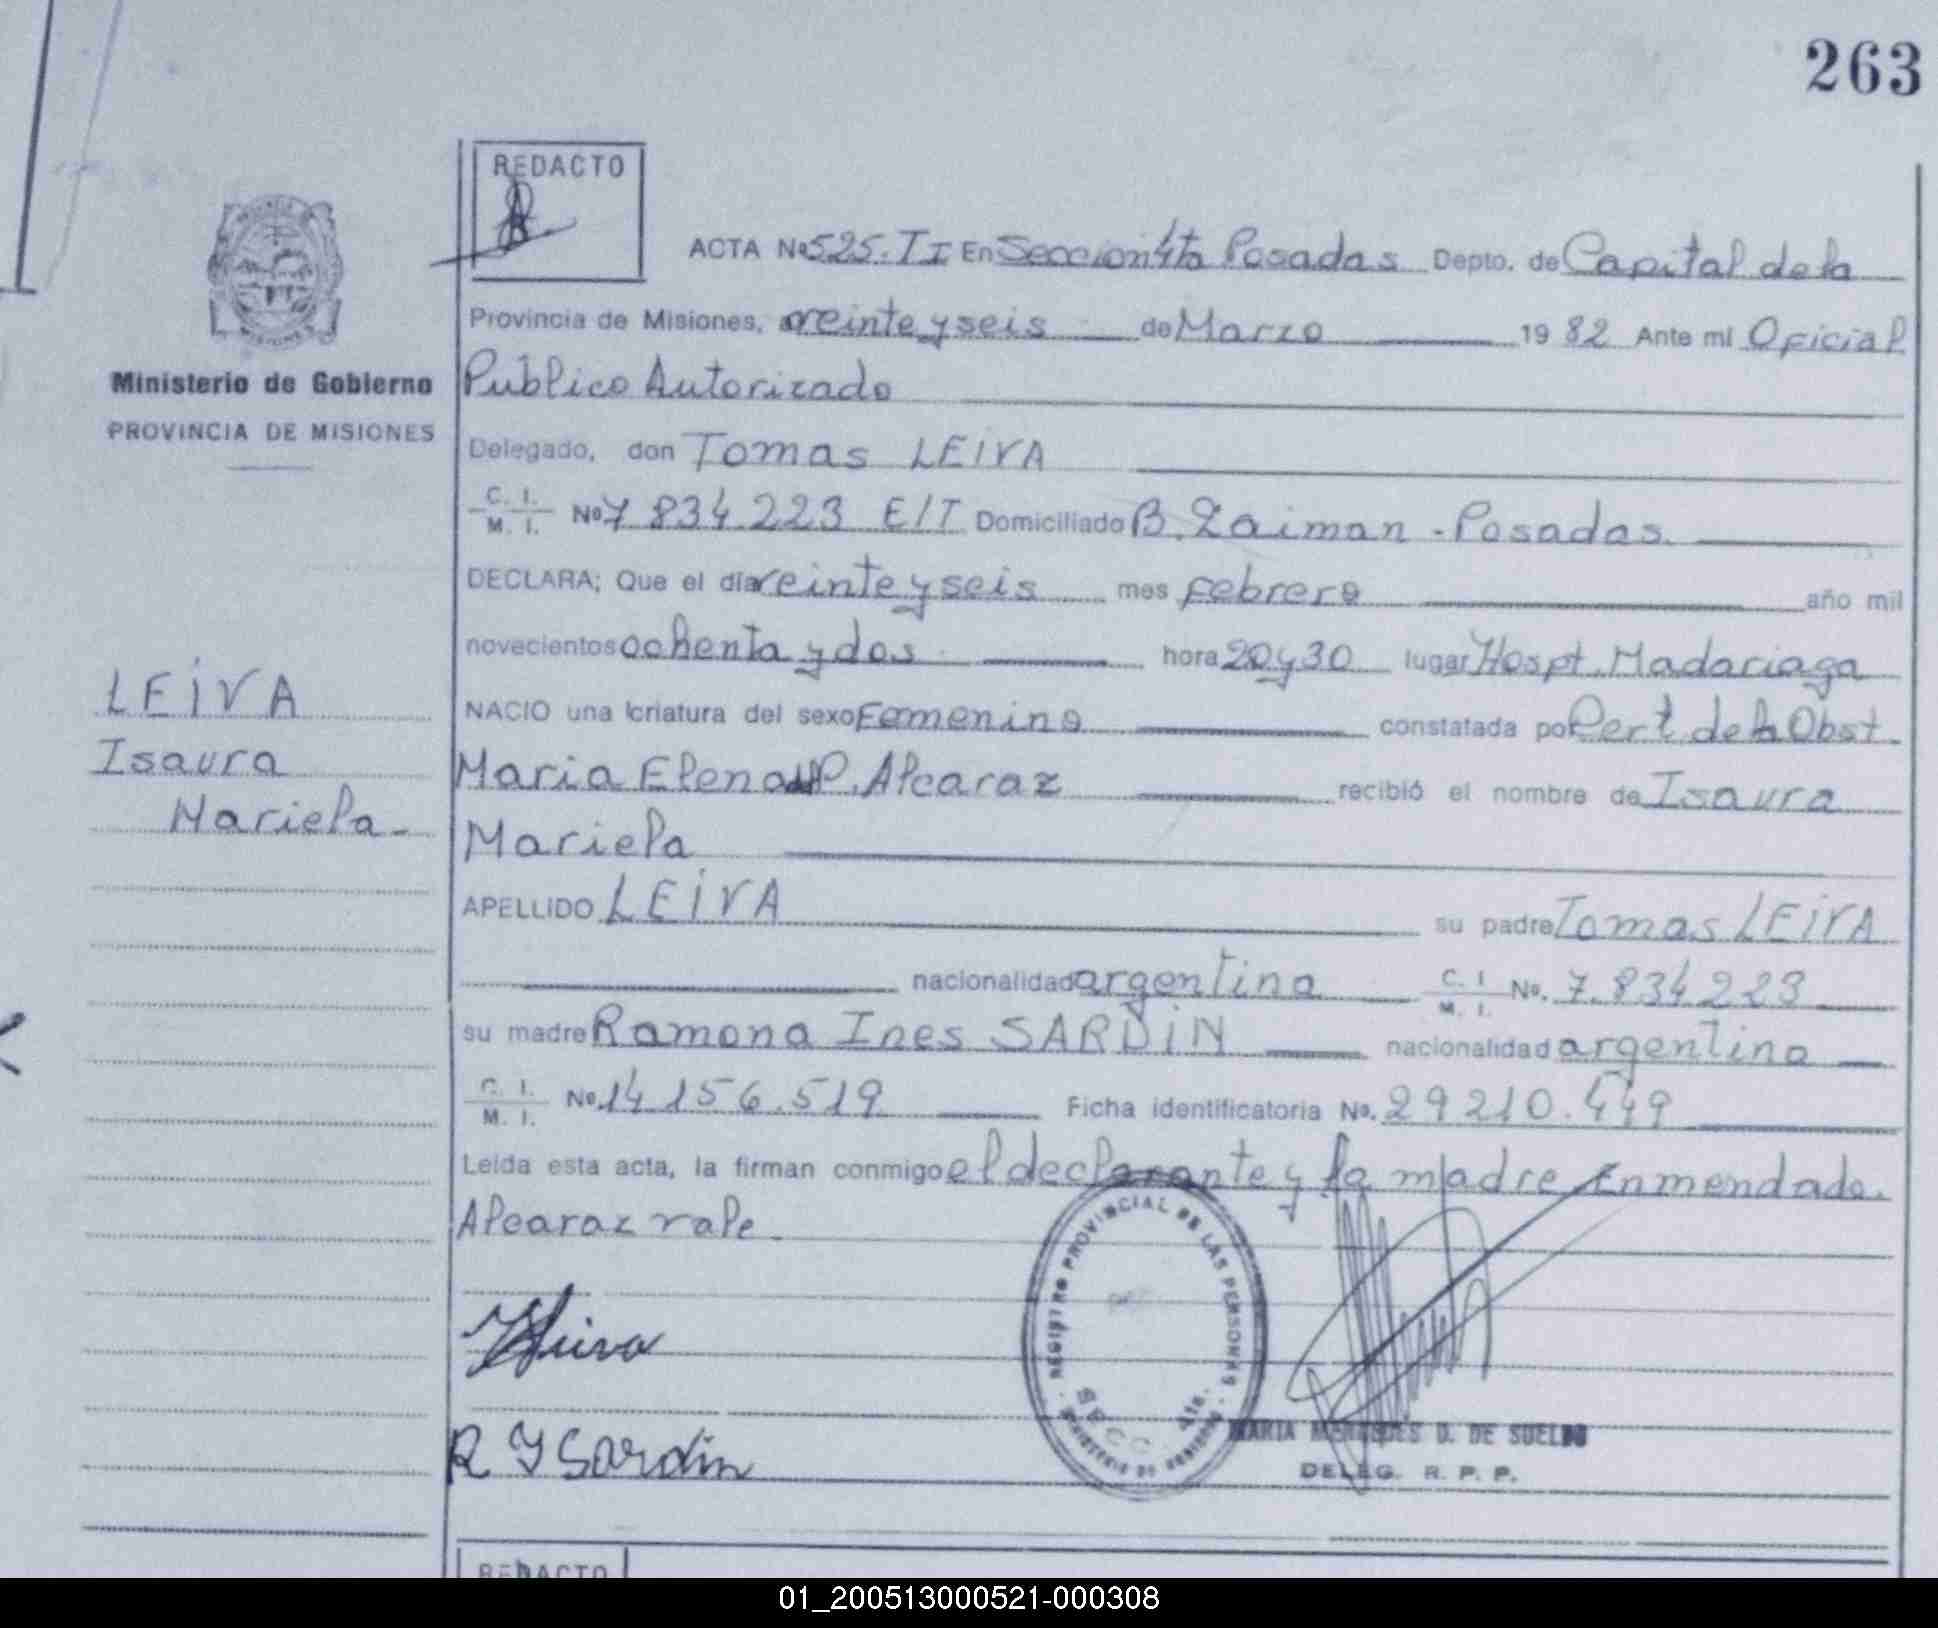 263
REDACTO
ACTA Nº 525. II En Seccion 4ta Posadas Depto. de Capital de la
Provincia de Misiones, a veinte y seis de Marzo 19 82 Ante mi Oficial
Ministerio de Gobierno
PROVINCIA DE MISIONES
Publico Autorizado
Delegado, don Tomas LEIVA
C. I.
M. I. Nº 7 834.223 E/T Domiciliado B. Zaiman - Posadas.
DECLARA; Que el día veinte y seis mes febrero año mil
novecientos ochenta y dos hora 20 y 30 lugar Hospt. Madariaga
LEIVA
Isaura
Mariela -
NACIO una criatura del sexo Femenino constatada por Cert. de la Obst.
Maria Elena P. Alcaraz recibió el nombre de Isaura
Mariela
APELLIDO LEIVA su padre Tomas LEIVA
nacionalidad argentina C. I
M. I. Nº. 7.834 223
su madre Ramona Ines SARDIN nacionalidad argentina
C. I.
M. I. Nº. 14 156.519 Ficha identificatoria Nº. 29 210.449
Leida esta acta, la firman conmigo el declarante y la madre Enmendado.
Alcaraz vale.
R I Sardin
REGISTRO PROVINCIAL DE LAS PERSONAS
SECC 4ta.
MINISTERIO DE GOBIERNO
MARIA MERCEDES D. DE SUELDO
DELEG. R. P. P.
REDACTO
01_200513000521-000308